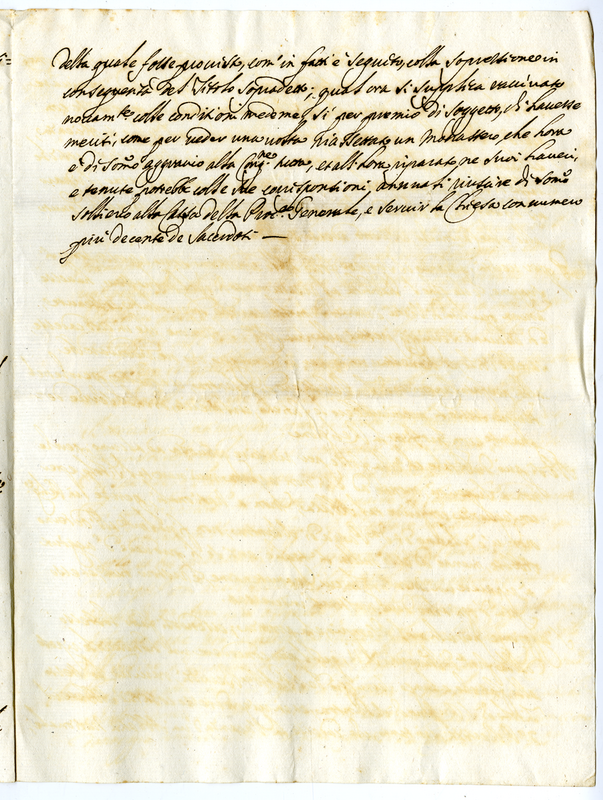 della quale fosse provisto, com' in fatti è seguito, colla sopressione in
conseguenza del Titolo sopradetto; qual ora si supplica ravvivato
novam.te colle condizioni medeme, sì per premio di Soggetto, di
meriti, come per veder una volta un Monastero, che hora
è di som.o aggravio alla tutta, et all'hora riparato ne suoi haveri,
e tenute potrebbe colle sue corrisponsioni annuali riuscire di som.o
sollievo alla Cassa della Proc. Generale, e servir la Chiesa con numero
più decente de Sacerdoti —